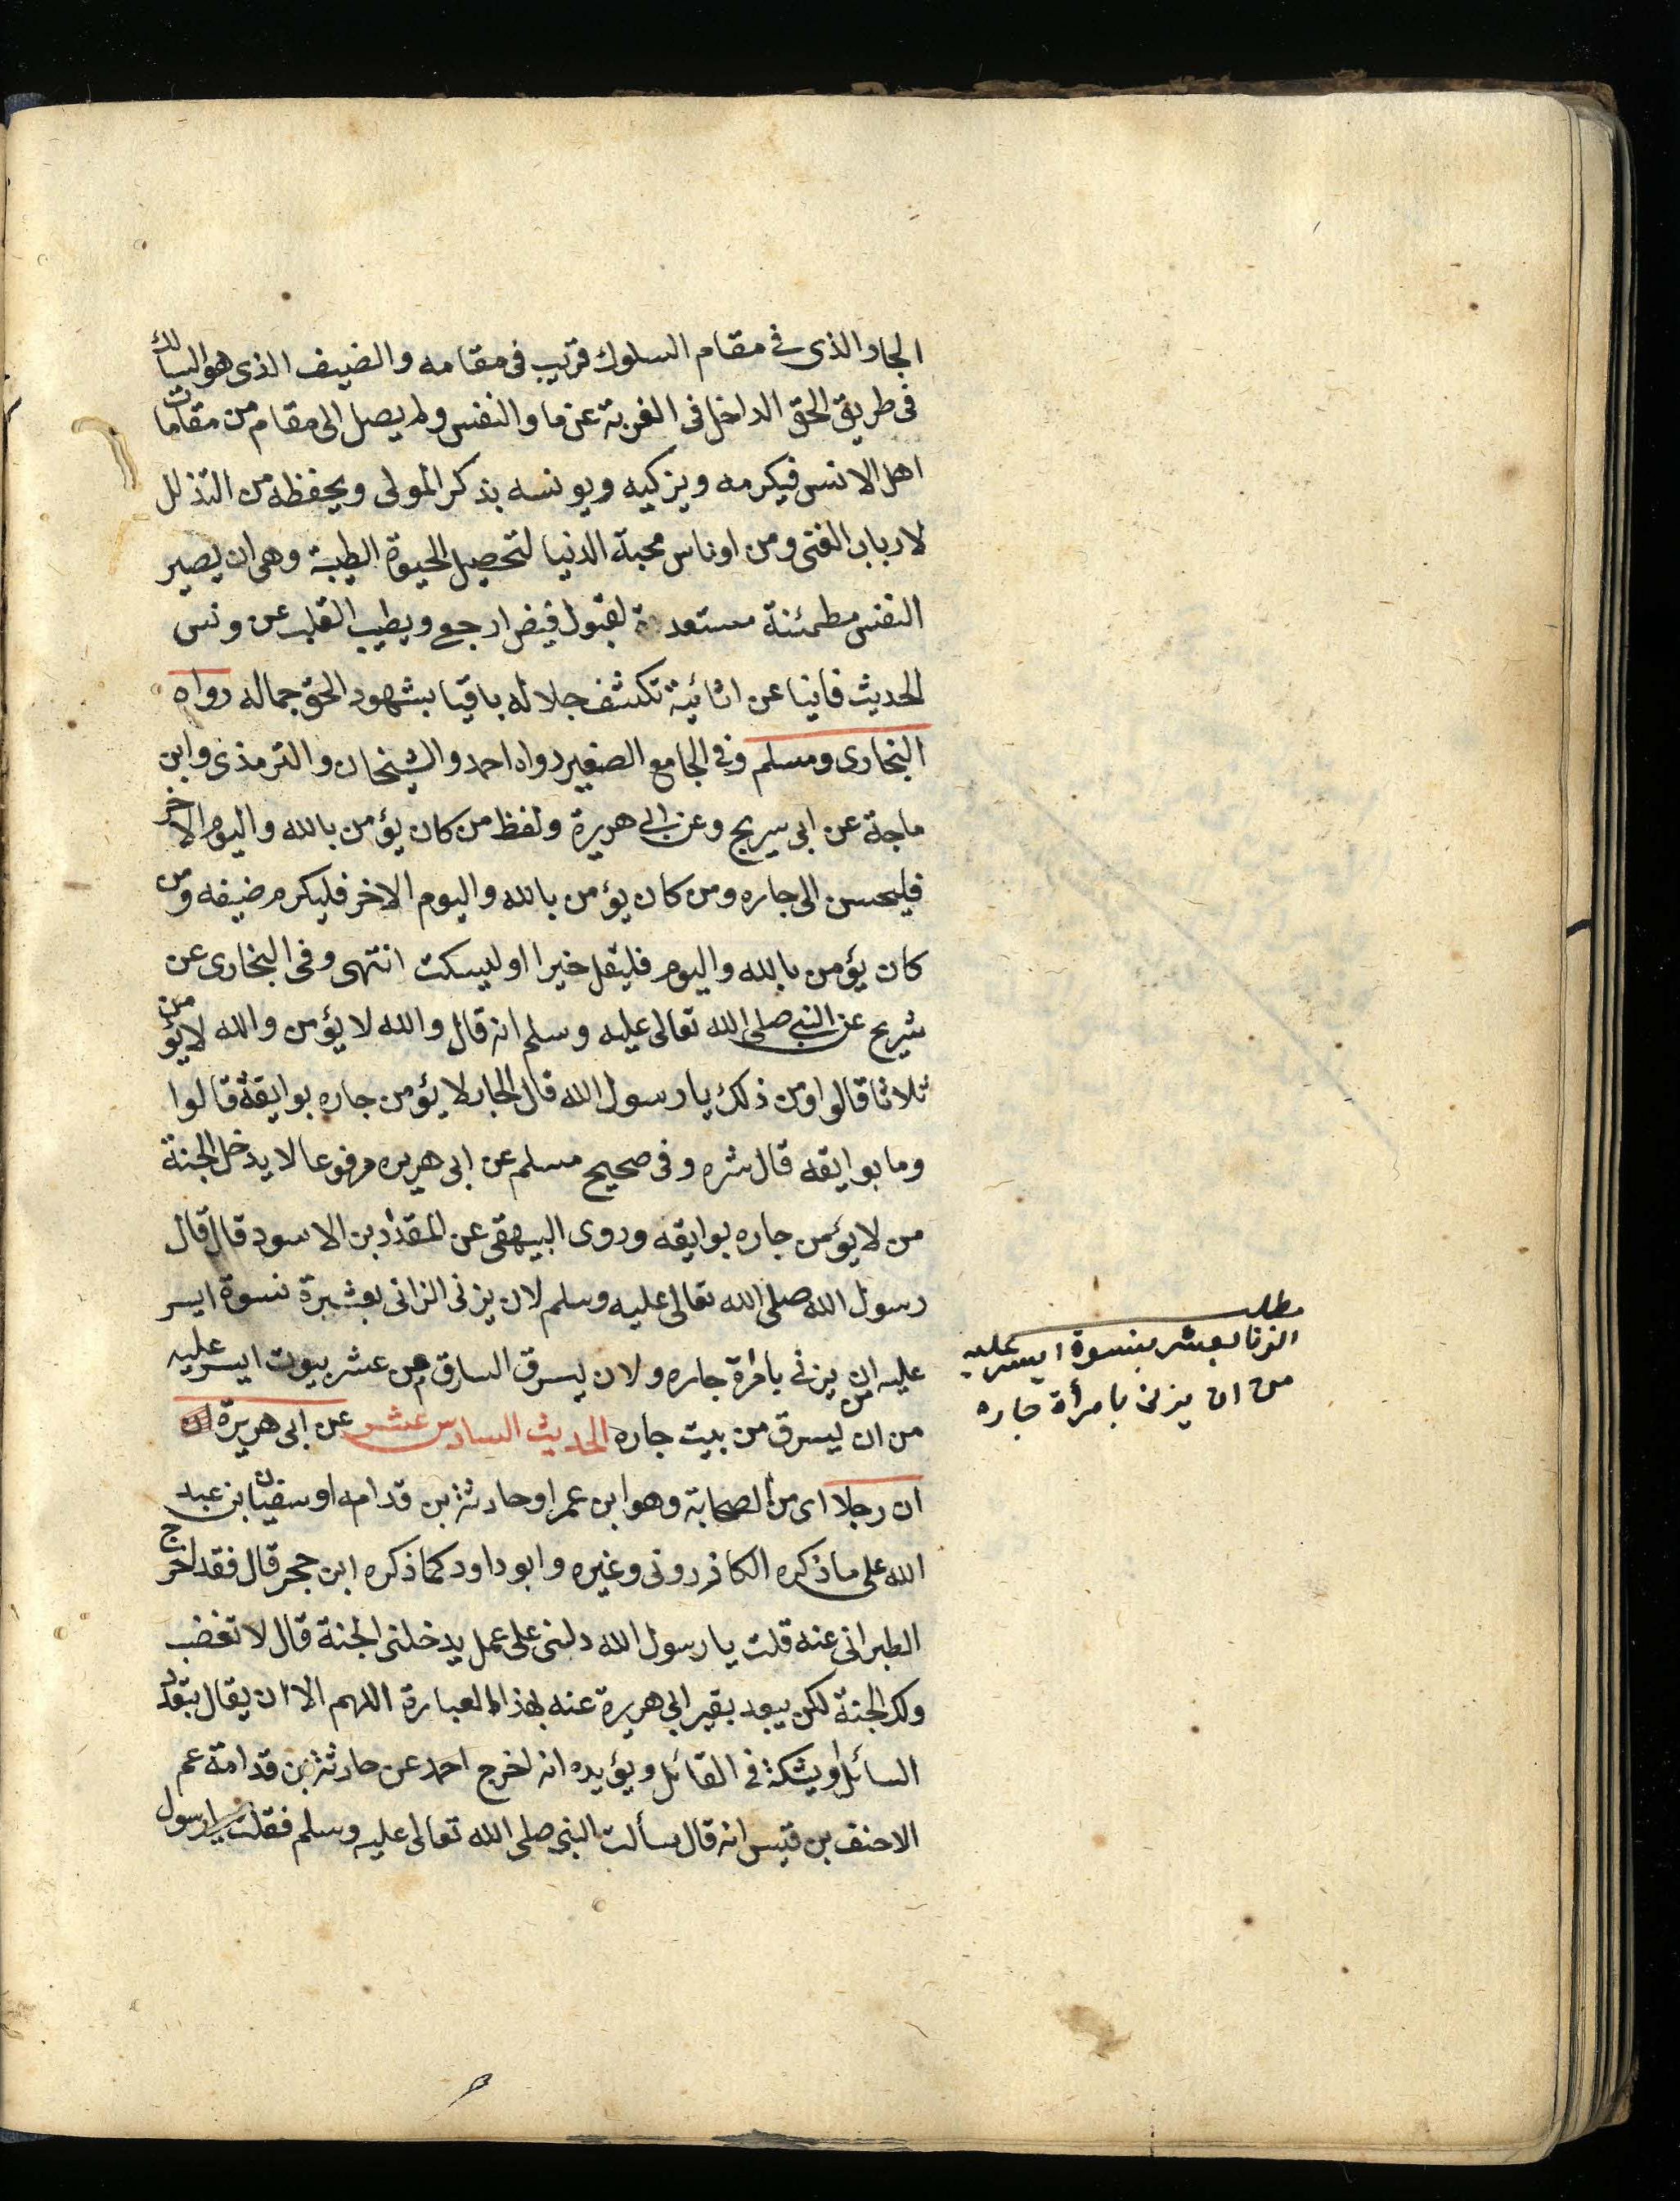 الجار الذى فى مقام السلوك قريب فى مقامه والضيف الذى هو السالك
فى طريق الحق الداخل فى الغربة عن ما و النفس ولم يصل الى مقام من مقامات
اهل الانس فيكرمه ويزكيه ويونسه بذكر المولى ويحفظه من التذلل
لارباب الغنى ومن اوناس محبة الدنيا لتحصيل الحيوة الطيبة وهى ان يصير
النفس مطمئنة مستعدة لقبول فيض ارجعى ويطيب القلب عن ونس
الحديث فانيا عن اثائية تكشف جلاله باقيا بشهود الحق جماله رواه
البخارى ومسلم وفى الجامع الصغير رواه احمد والشيخان والترمذى وابن
ماجة عن ابى سريح وعن ابى هريرة ولفظ من كان يؤمن بالله واليوم الاخر
فليحسن الى جاره ومن كان يؤمن بالله واليوم الاخر فليكرم ضيفه ومن
كان يؤمن بالله واليوم فليقل خيرا او ليسكت انتهى وفى البخارى عن
شريح عن النبى صلى الله تعالى عليه وسلم انه قال والله لا يؤمن والله لا يؤمن
ثلاثا قالوا ومن ذلك يا رسول الله قال الجار لا يؤمن جاره بوايقه قالوا
وما بوايقه قال شره وفى صحيح مسلم عن ابى هريره مرفوعا لا يدخل الجنة
من لا يؤمن جاره بوايقه وروى البيهقى عن المقداد بن الاسود قال قال
رسول الله صلى الله تعالى عليه وسلم لان يزنى الزانى بعشرة نسوة ايسر
عليه من ان يزنى بامرأة جاره ولان يسرق السارق من عشر بيوت ايسر عليه
من ان يسرق من بيت جاره الحديث السادس عشر عن ابى هريرة
ان رجلا اى من الصحابة وهو ابن عمر او حارثة بن قدامه او سفيان بن عبد
الله على ما ذكره الكازرونى وغيره وابو داود كما ذكره ابن حجر قال فقد اخرج
الطبرانى عنه قلت يا رسول الله دلنى على عمل يدخلنى الجنة قال لا تغضب
ولك الجنة لكن يبعد بقير ابى هريرة عنه بهذا العبارة اللهم الا ان يقال بتعدد
السائل او يشكه فى القائل ويؤيده انه اخرج احمد عن حارثة بن قدامة عم
الاحنف بن قيس انه قال سألت النبى صلى الله تعالى عليه وسلم فقلت يا رسول
مطلب
الزنا بعشر بنسوة ايسر عليه
من ان يزنى بامرأة جاره